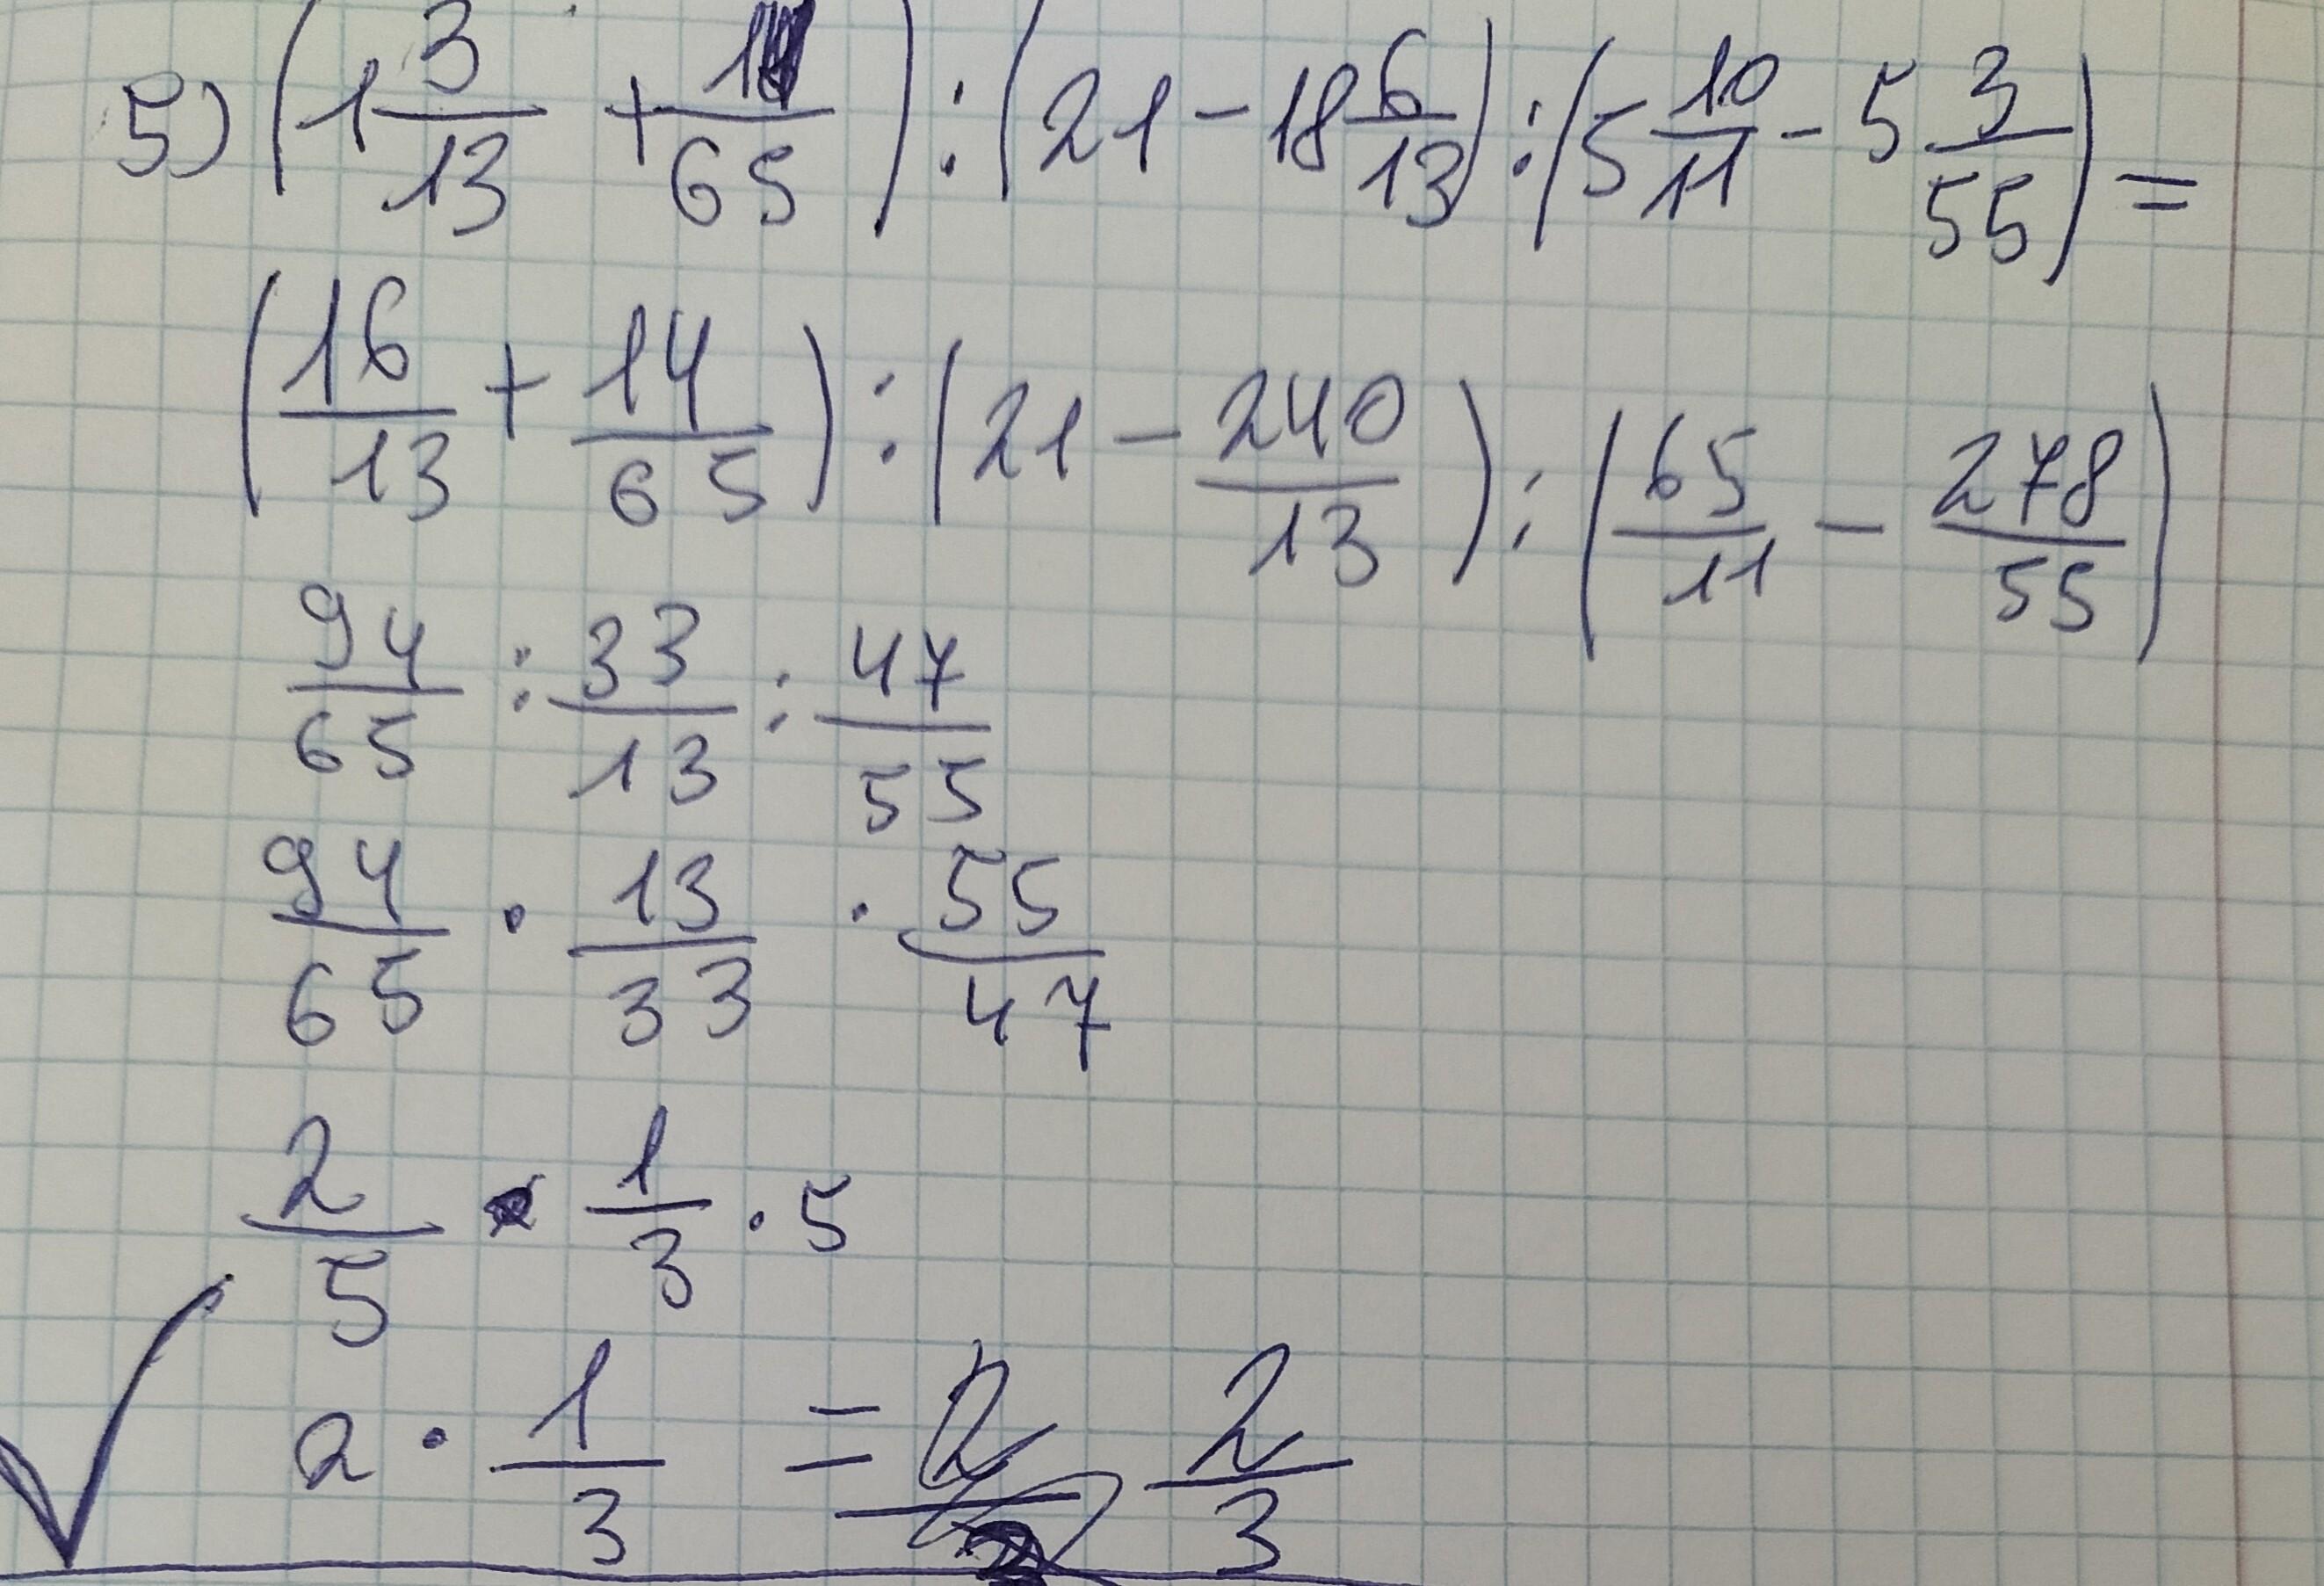 5) (1 3/13 + 1/65) : (21 - 18 6/13) : (5 10/11 - 5 3/55) =
(16/13 + 14/65) : (21 - 240/13) : (65/11 - 278/55)
94/65 : 33/13 : 47/55
94/65 · 13/33 · 55/47
2/5 · 1/3 · 5
2 · 1/3 = 2/3